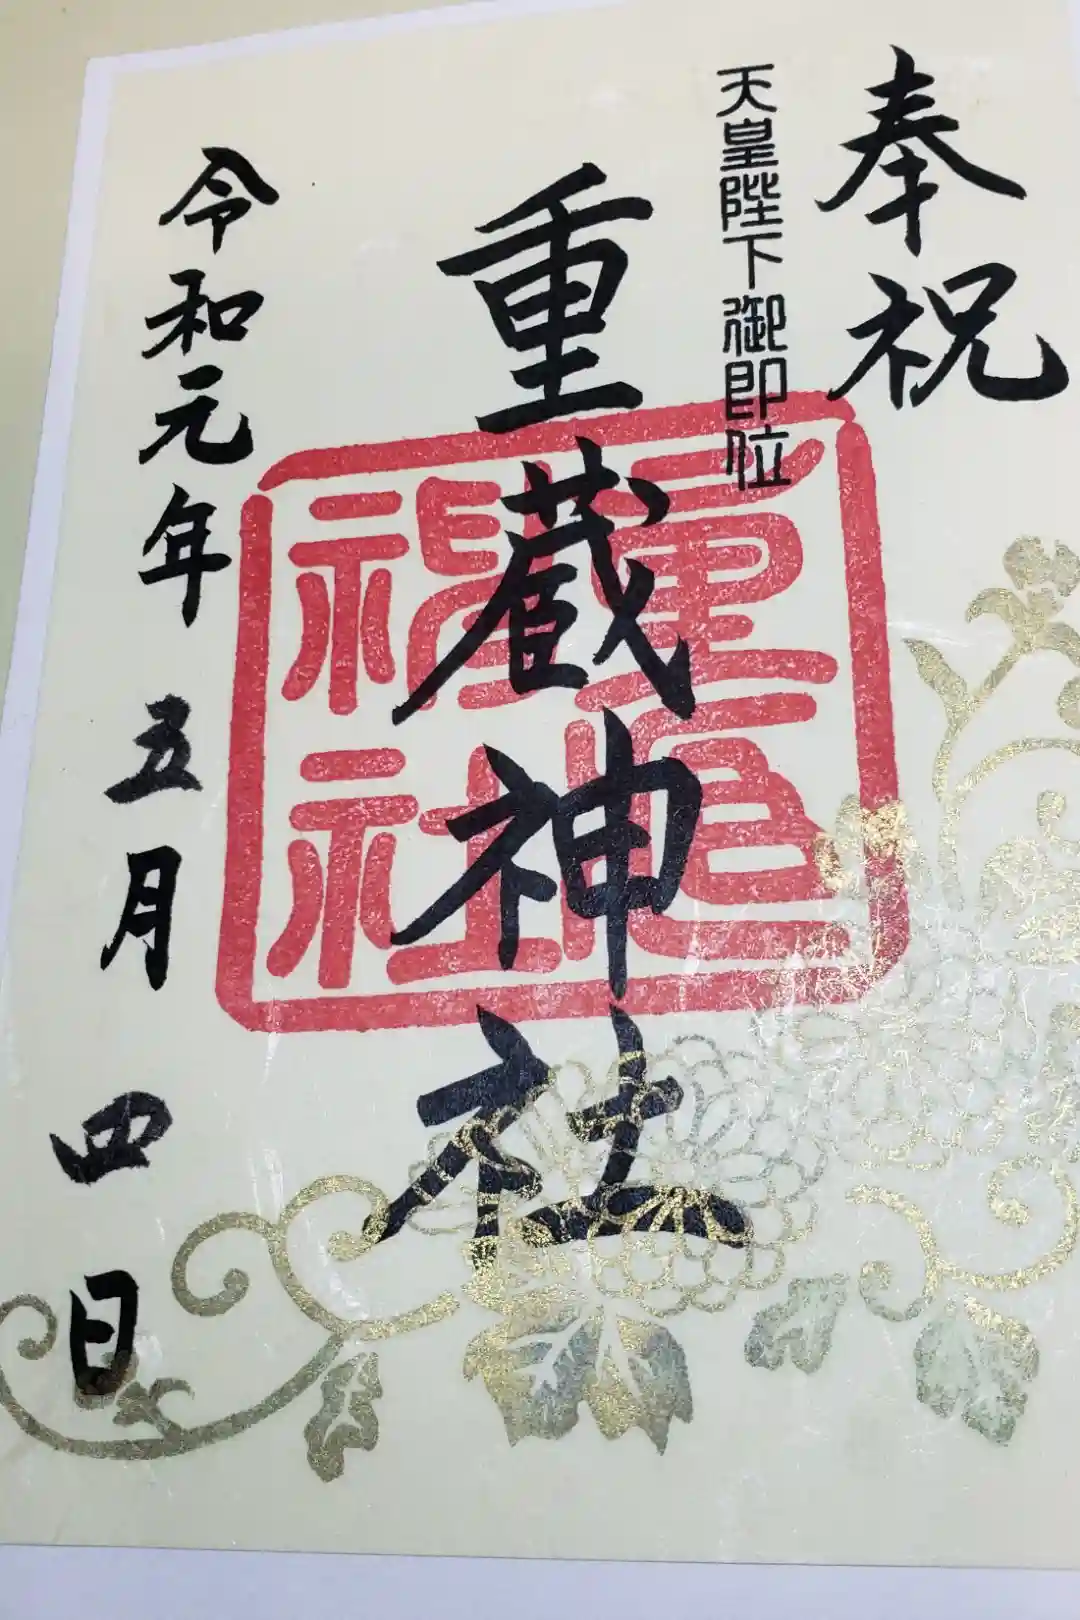 奉祝
天皇陛下御即位
重蔵神社
令和元年 五月 四日